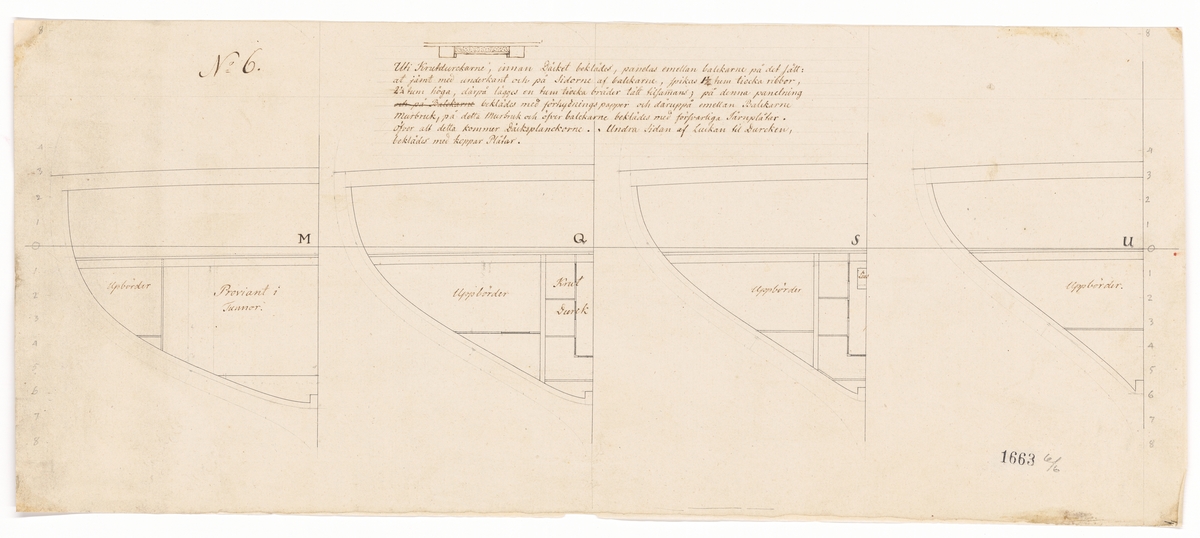 No 6.
Uti Krutdurckarne, innan Däcket beklädes, panelas emellan balckarne på det sätt:
at jämt med underkant och på Sidorne af balckarne, spikas tum tiocka ribbor,
tum höga, därpå lägges en tum tiocka bräder tätt tilsamans; på denna panelning
och på Balckarne beklädes med förhydnings papper och däruppå emellan Balckarne
Murbruk, på detta Murbruk och öfver balckarne beklädes med förfvarliga Järnplåtar.
öfver alt detta kommer Däcksplanckorne. Undra Sidan af Luckan til Durcken,
beklädes med koppar Plåtar.
8 8
4 4
3 3
2 2
1 1
M Q S U
0 0
1 1
2 2
3 3
4 4
5 5
6 6
7 7
8 8
Upbörder
Proviant i
Tunnor.
Uppbörder
Krut
Durck
Uppbörder
Uppbörder.
1663 6/6